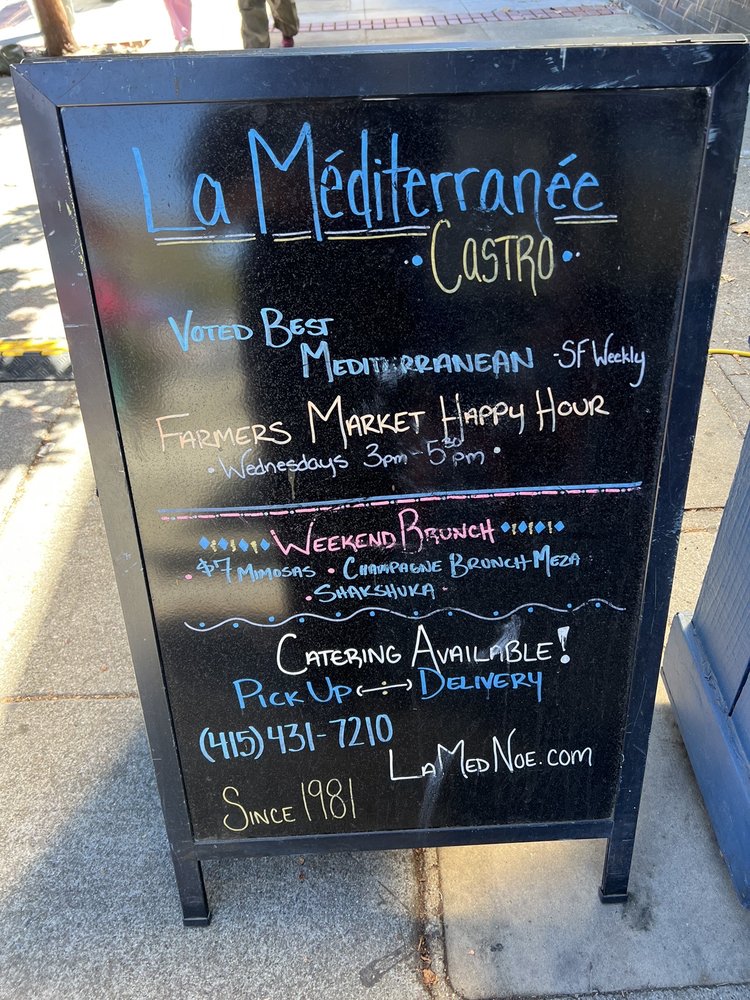 La Méditerranée
• CASTRO •
VOTED BEST
MEDITERRANEAN - SF Weekly
FARMERS MARKET HAPPY HOUR
• Wednesdays 3pm - 5³⁰pm •
WEEKEND BRUNCH
• $7 MIMOSAS • CHAMPAGNE BRUNCH MEZA
• SHAKSHUKA •
CATERING AVAILABLE!
PICK UP ↔ DELIVERY
(415) 431-7210
LAMEDNOE.com
SINCE 1981